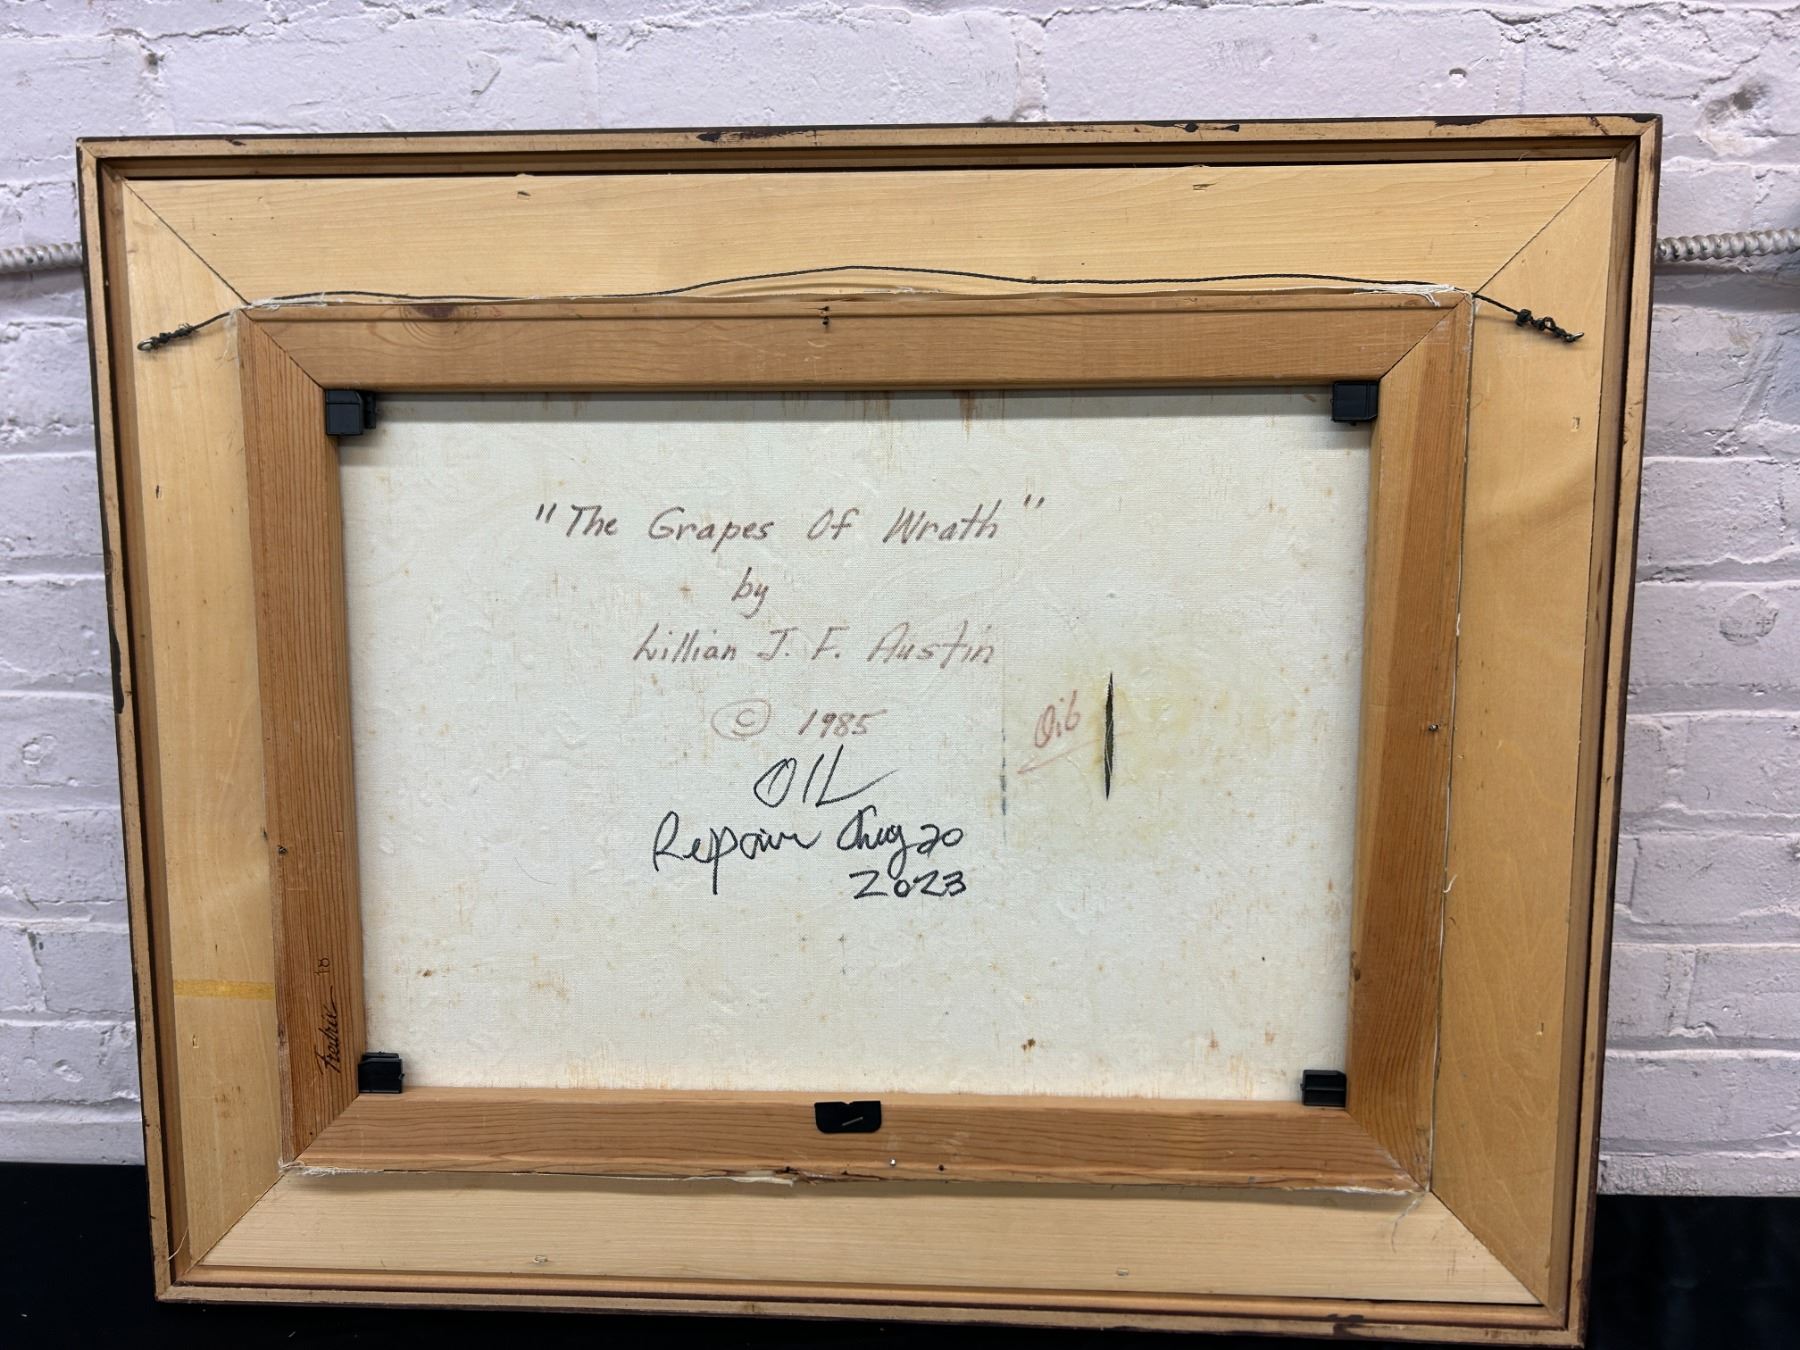 "The Grapes Of Wrath"
by
Lillian J. F. Austin
© 1985
Oil
OIL
Repair Aug 20
2023
Fredrix 18